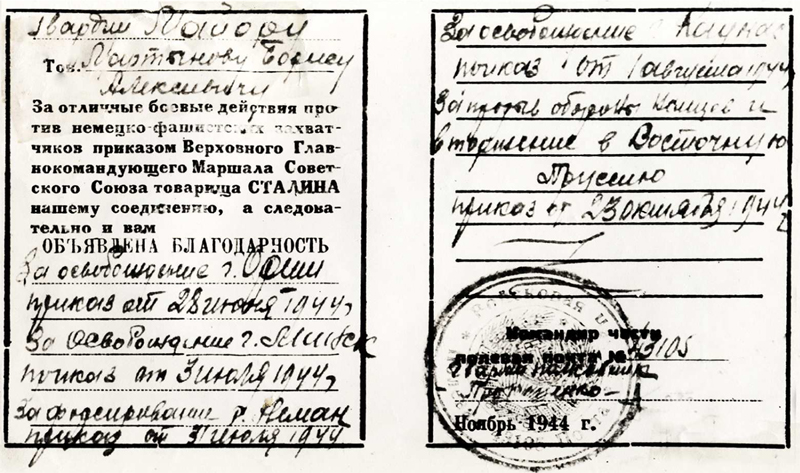 гвардии Майору
Тов. Мартынову Борису
Алексеевичу
За отличные боевые действия про-
тив немецко-фашистских захват-
чиков приказом Верховного Глав-
нокомандующего Маршала Совет-
ского Союза товарища СТАЛИНА
нашему соединению, а следова-
тельно и вам
ОБЪЯВЛЕНА БЛАГОДАРНОСТЬ
За освобождение г. Орши
приказ от 28 июня 1944г
За освобождение г. Минск
приказ от 3 июля 1944г
За форсирование р. Неман
приказ от 31 июля 1944
За освобождение г. Каунас
приказ от 1 августа 1944
За прорыв обороны немцев и
вторжение в Восточную
Пруссию
приказ от 23 октября 1944г
Командир части
полевая почта № 43105
Гвардии полковник
Ноябрь 1944 г.